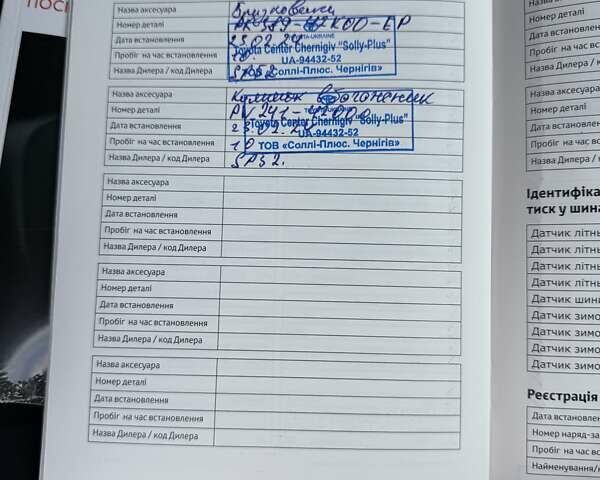 ПОСІ
Назва аксесуара Бризковики
Номер деталі
Дата встановлення
Пробіг на час встановлення 10.
Назва Дилера / код Дилера
TOYOTA-UKRAINE
Toyota Center Chernigiv "Solly-Plus"
UA-94432-52
ТОВ «Соллі-Плюс. Чернігів»
Назва аксесуара
Номер деталі
Дата встановлення
Пробіг на час встановлення 10
Назва Дилера / код Дилера
Toyota Center Chernigiv "Solly-Plus"
UA-94432-52
ТОВ «Соллі-Плюс. Чернігів»
Назва аксесуара
Номер деталі
Дата встановлення
Пробіг на час встановлення
Назва Дилера / код Дилера
Назва аксесуара
Номер деталі
Дата встановлення
Пробіг на час встановлення
Назва Дилера / код Дилера
Назва аксесуара
Номер деталі
Дата встановлення
Пробіг на час встановлення
Назва Дилера / код Дилера
Номер деталі
Дата встановлен
Пробіг на час
Назва Дилера
Назва аксесуара
Номер деталі
Дата встановле
Пробіг на час в
Назва Дилера /
Ідентифіка
тиск у шина
Датчик літнь
Датчик літнь
Датчик літнь
Датчик літнь
Датчик шини
Датчик зимо
Датчик зимо
Датчик зимо
Датчик зимо
Реєстрація
Дата встановлен
Номер наряд-за
Пробіг на час вс
Найменування/к